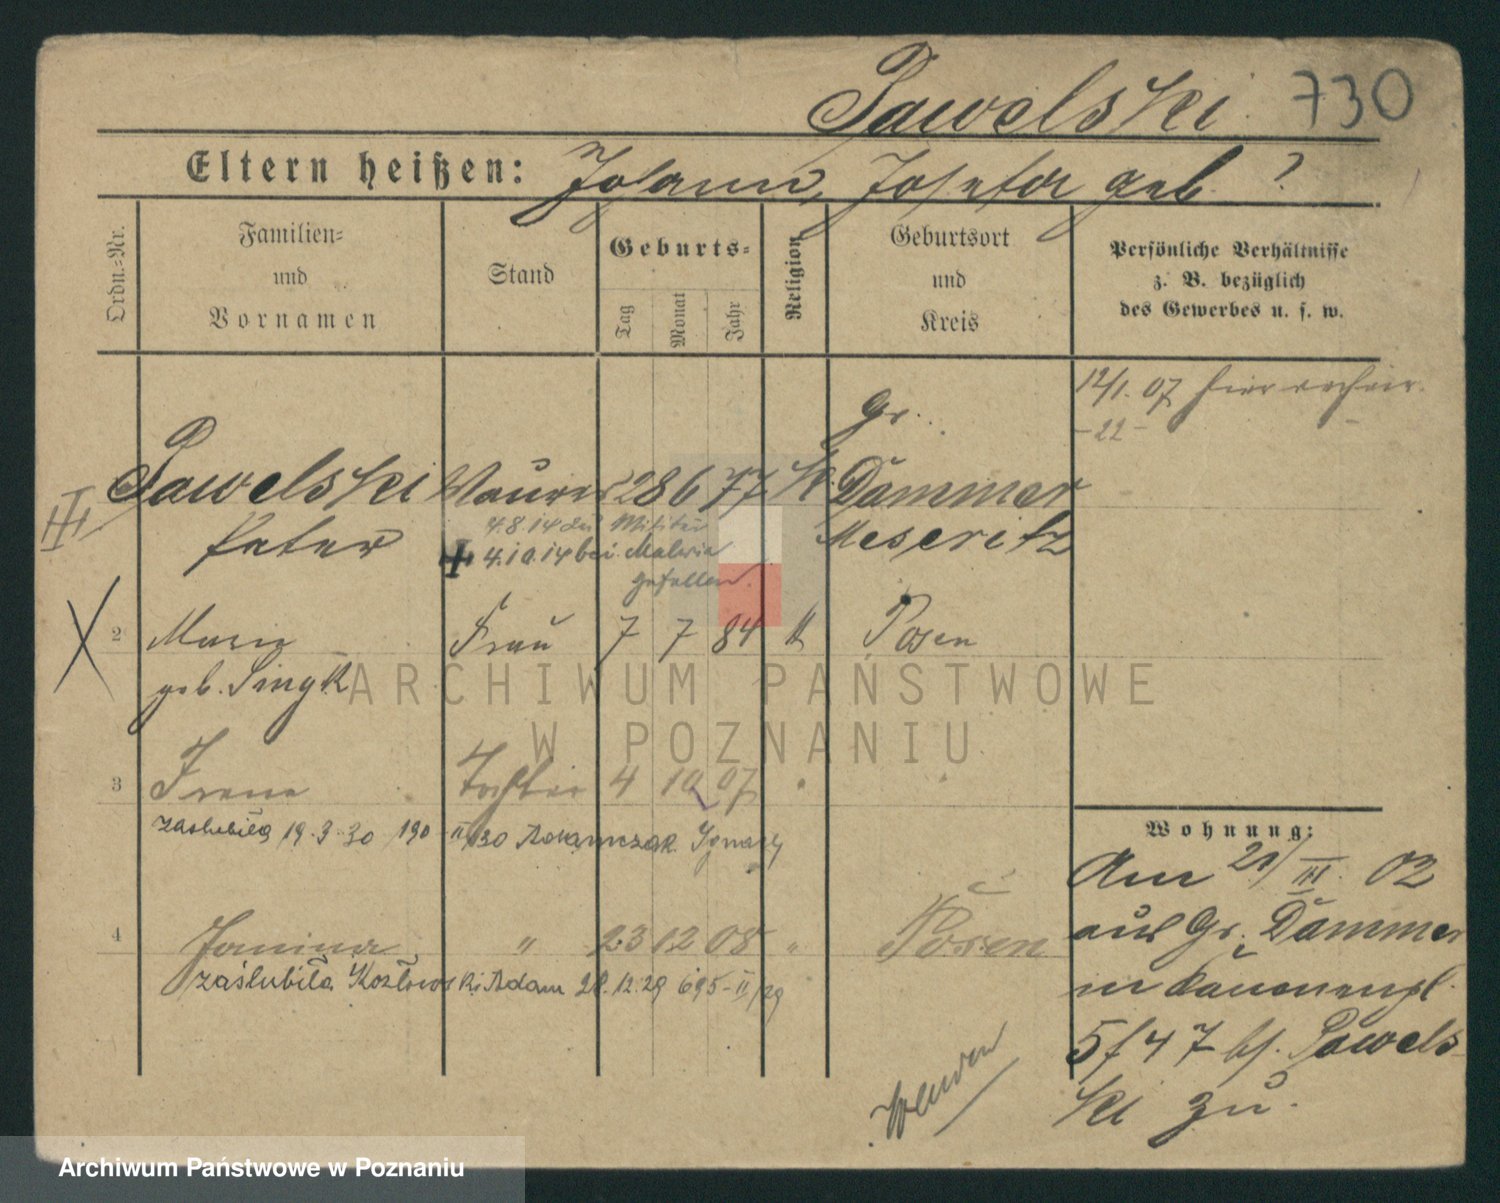 Pawelski 730
Eltern heißen: Johann, Josefa geb. ?
Ordn.-Nr.
Familien-
und
Vornamen
Stand
Geburts-
Tag
Monat
Jahr
Religion
Geburtsort
und
Kreis
Persönliche Verhältnisse
z. B. bezüglich
des Gewerbes u. s. w.
12/1. 07 hier
-22-
Gr.
Pawelski Maurer 28 6 77 k. Dammer
Peter Meseritz
4.8.14 zu Militär
4.10.14 bei
gefallen.
2 Marie Frau 7 7 84 k Posen
geb. Singk
ARCHIWUM PAŃSTWOWE
W POZNANIU
3 Irene Tochter 4 10 07 "
zaślubiła 19.3.30 190-II/30 Adamczak Ignacy
4 Janina " 23 12 08 " Posen
zaślubiła Kozłowski Adam 28.12.29 695-II/29
Wohnung:
Am 21/III. 02
aus Gr. Dammer
in
5/47 bf. Pawels-
ki zu.
Wenden
Archiwum Państwowe w Poznaniu